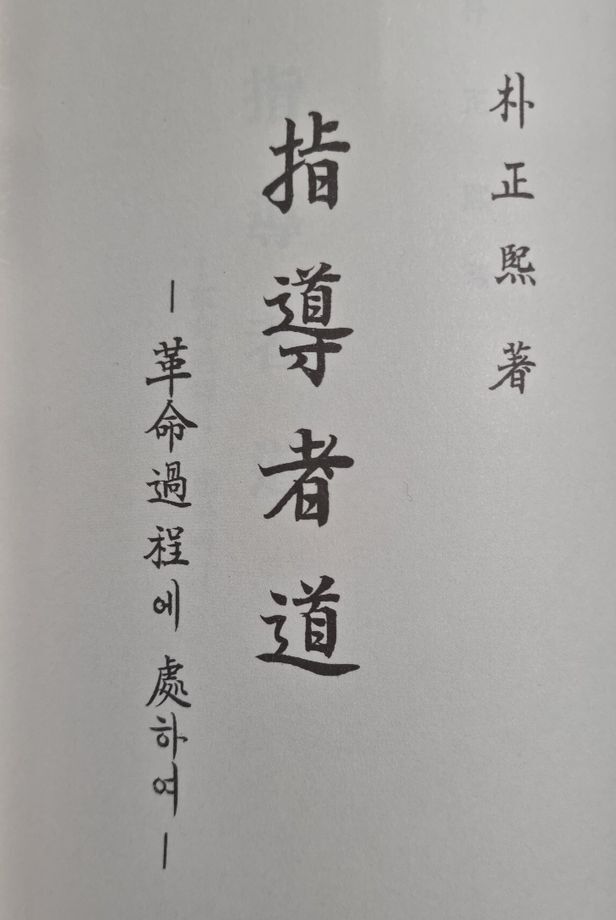 朴正熙 著
指導者道
―革命過程에 處하여―